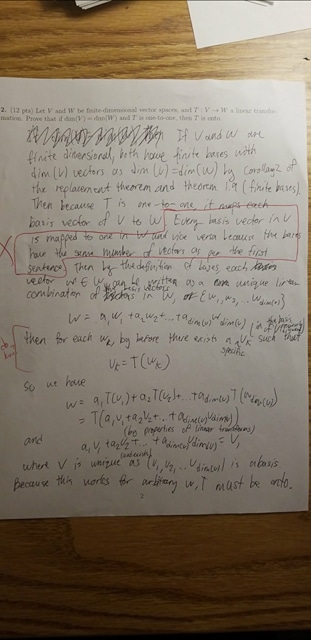 2. (12 pts) Let V and W be finite-dimensional vector spaces, and T : V → W a linear transfor-
mation. Prove that if dim(V) = dim(W) and T is one-to-one, then T is onto.
If V and W are
finite dimensional, both have finite bases with
dim(V) vectors as dim(V)=dim(W) by corollary 2 of
the replacement theorem and theorem 1.9 (finite bases).
Then because T is one-to-one it maps each
basis vector of V to W. Every basis vector in V
is mapped to one in W and vice versa because the bases
have the same number of vectors as per the first
sentence. Then by the definition of bases each
vector w ∈ W can be written as a unique linear
combination of the basis vectors in W, {w₁, w₂, ... w dim(V)}
W = a₁w₁ + a₂w₂ + ... + a dim(V) w dim(V)
then for each wₖ by before there exists a specific vₖ in the basis such that
vₖ = T(wₖ)
so we have
w = a₁T(v₁) + a₂T(v₂) + ... + a dim(V) T(v dim(V))
= T(a₁v₁ + a₂v₂ + ... + a dim(V) v dim(V))
(by properties of linear transforms)
and a₁v₁ + a₂v₂ + ... + a dim(V) v dim(V) = V,
where V is unique as {v₁, v₂, ... v dim(V)} is a basis
Because this works for arbitrary w, T must be onto.
2